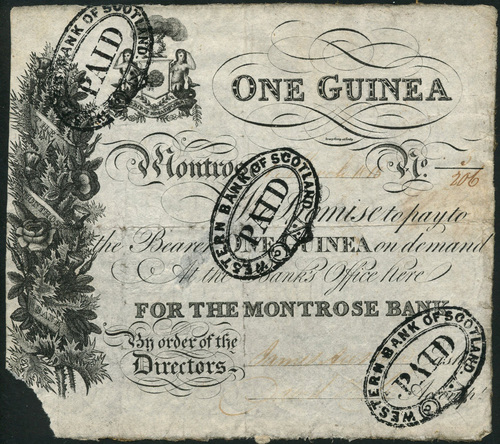 WESTERN BANK OF SCOTLAND
PAID
ONE GUINEA
Montros No. 206
WESTERN BANK OF SCOTLAND
PAID
mise to pay to
the Bearer ONE GUINEA on demand
At the Banks Office Here
FOR THE MONTROSE BANK
By order of the
Directors
WESTERN BANK OF SCOTLAND
PAID